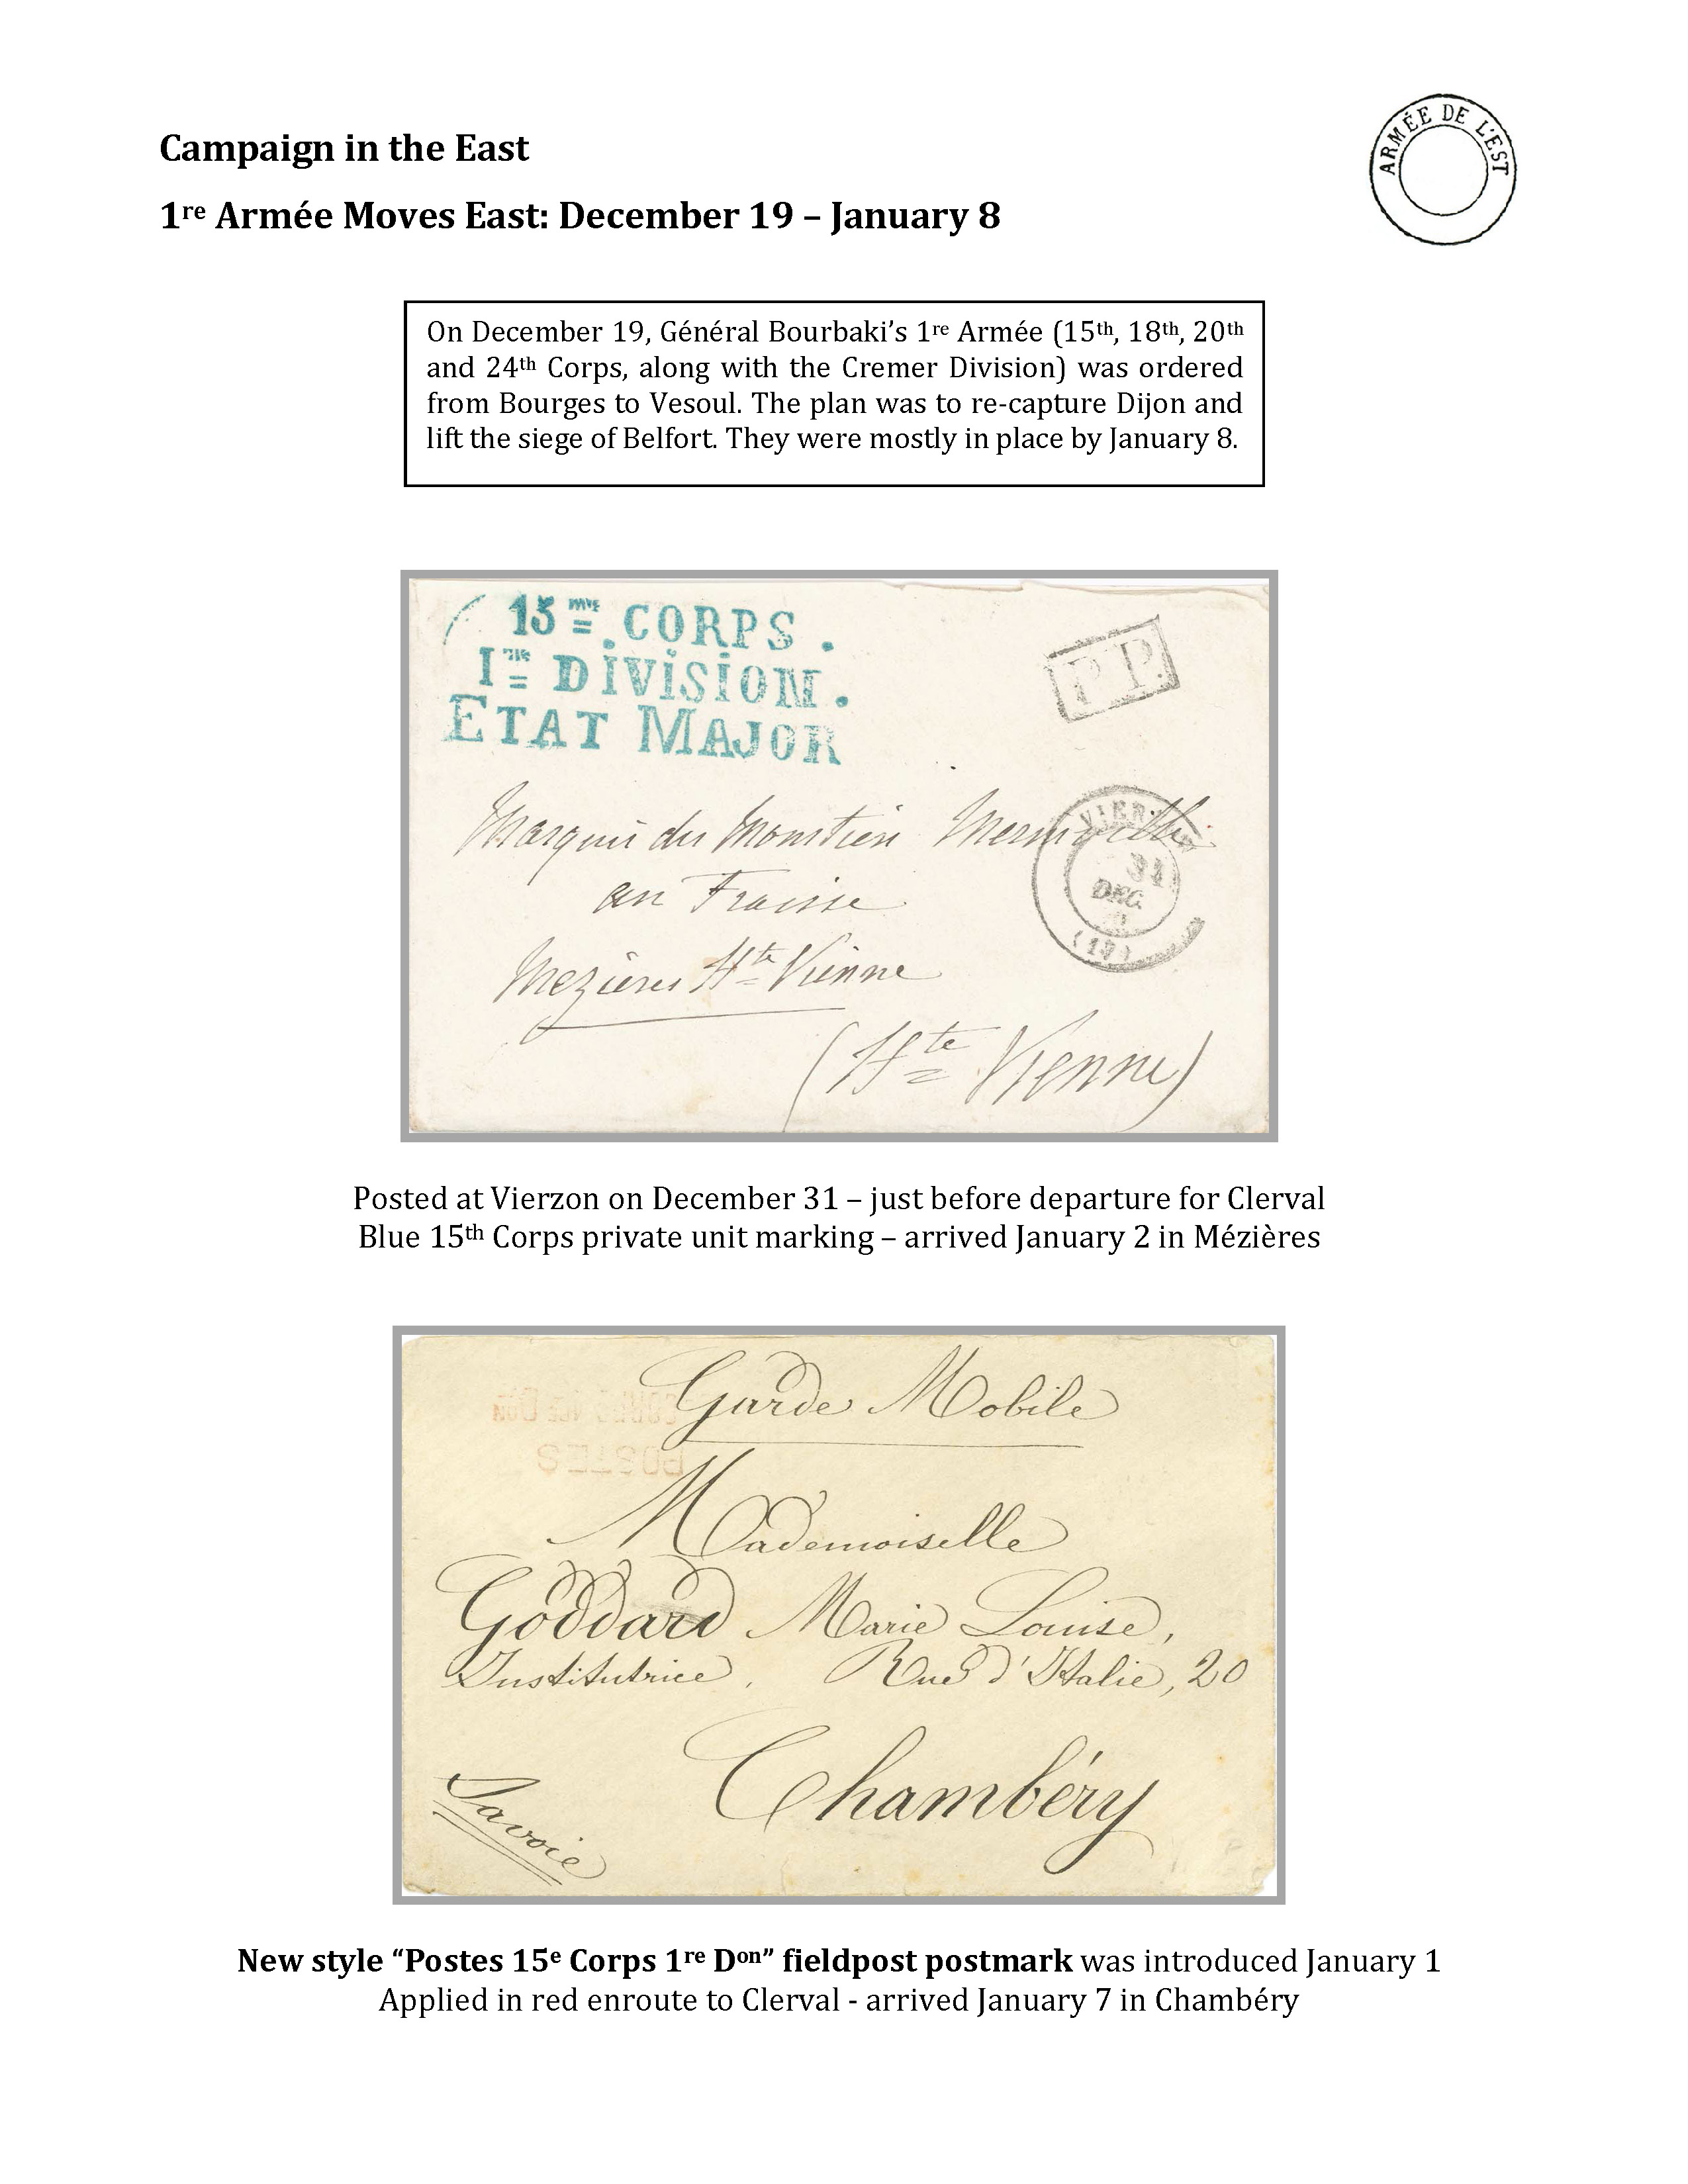 Campaign in the East
ARMÉE DE L'EST
1re Armée Moves East: December 19 – January 8
On December 19, Général Bourbaki's 1re Armée (15th, 18th, 20th
and 24th Corps, along with the Cremer Division) was ordered
from Bourges to Vesoul. The plan was to re-capture Dijon and
lift the siege of Belfort. They were mostly in place by January 8.
15me CORPS.
Ire DIVISION.
ETAT MAJOR
P.P.
Marquis du
31
DEC.
au Fraisse
Mezières Hte Vienne
(Hte Vienne)
Posted at Vierzon on December 31 – just before departure for Clerval
Blue 15th Corps private unit marking – arrived January 2 in Mézières
Garde Mobile
POSTES
Mademoiselle
Goddard Marie Louise,
Institutrice, Rue d'Italie, 20
Chambéry
Savoie
New style “Postes 15e Corps 1re Don” fieldpost postmark was introduced January 1
Applied in red enroute to Clerval - arrived January 7 in Chambéry